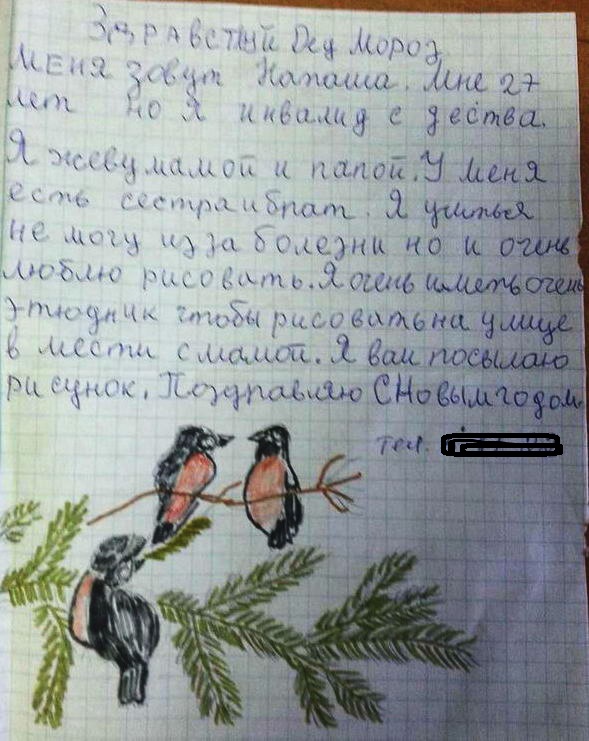 Здравствуй Дед Мороз.
Меня зовут Наташа. Мне 27
лет но я инвалид с дества.
Я жеву мамой и папой. У меня
есть сестра и брат. Я учиться
не могу из за болезни но и очень
люблю рисовать. Я очень иметь очень
этюдник чтобы рисовать на улице
в мести с мамой. Я вам посылаю
рисунок. Поздравляю С Новым годом.
тел.